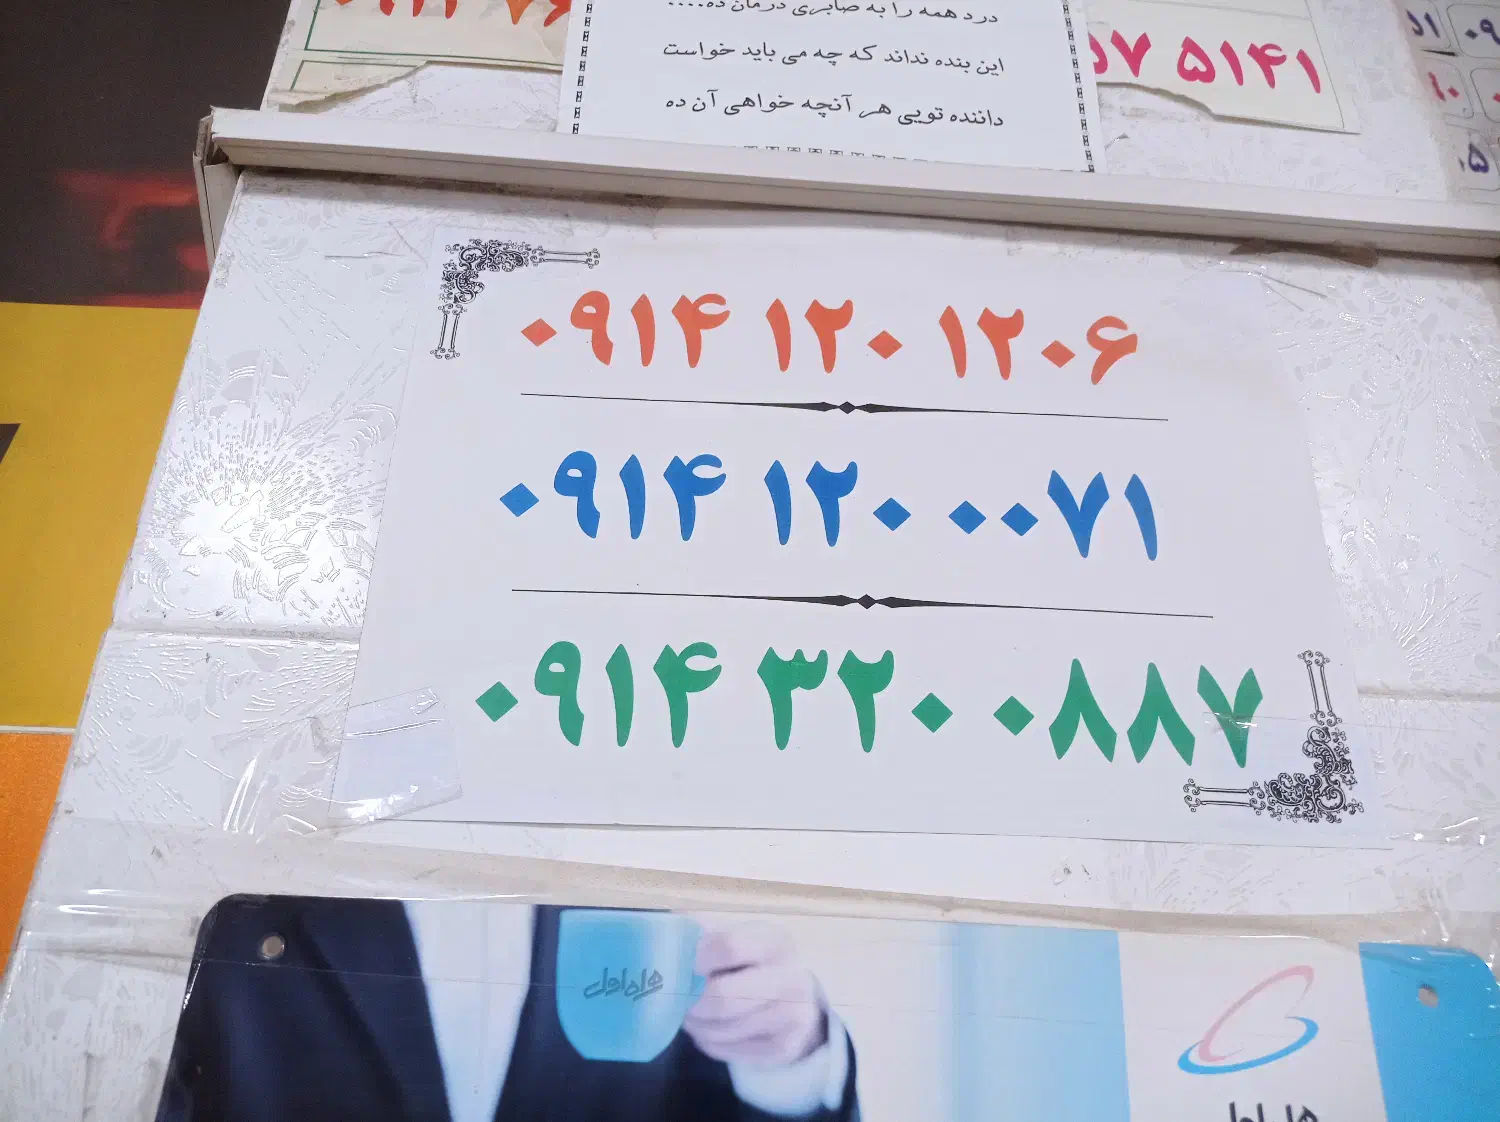 درد همه را به صابری درمان ده....
این بنده نداند که چه می باید خواست
داننده تویی هر آنچه خواهی آن ده
۵۷ ۵۱۴۱
۰۹۱۴ ۱۲۰ ۱۲۰۶
۰۹۱۴ ۱۲۰ ۰۰۷۱
۰۹۱۴ ۳۲۰ ۰۸۸۷
همراه اول
همراه اول